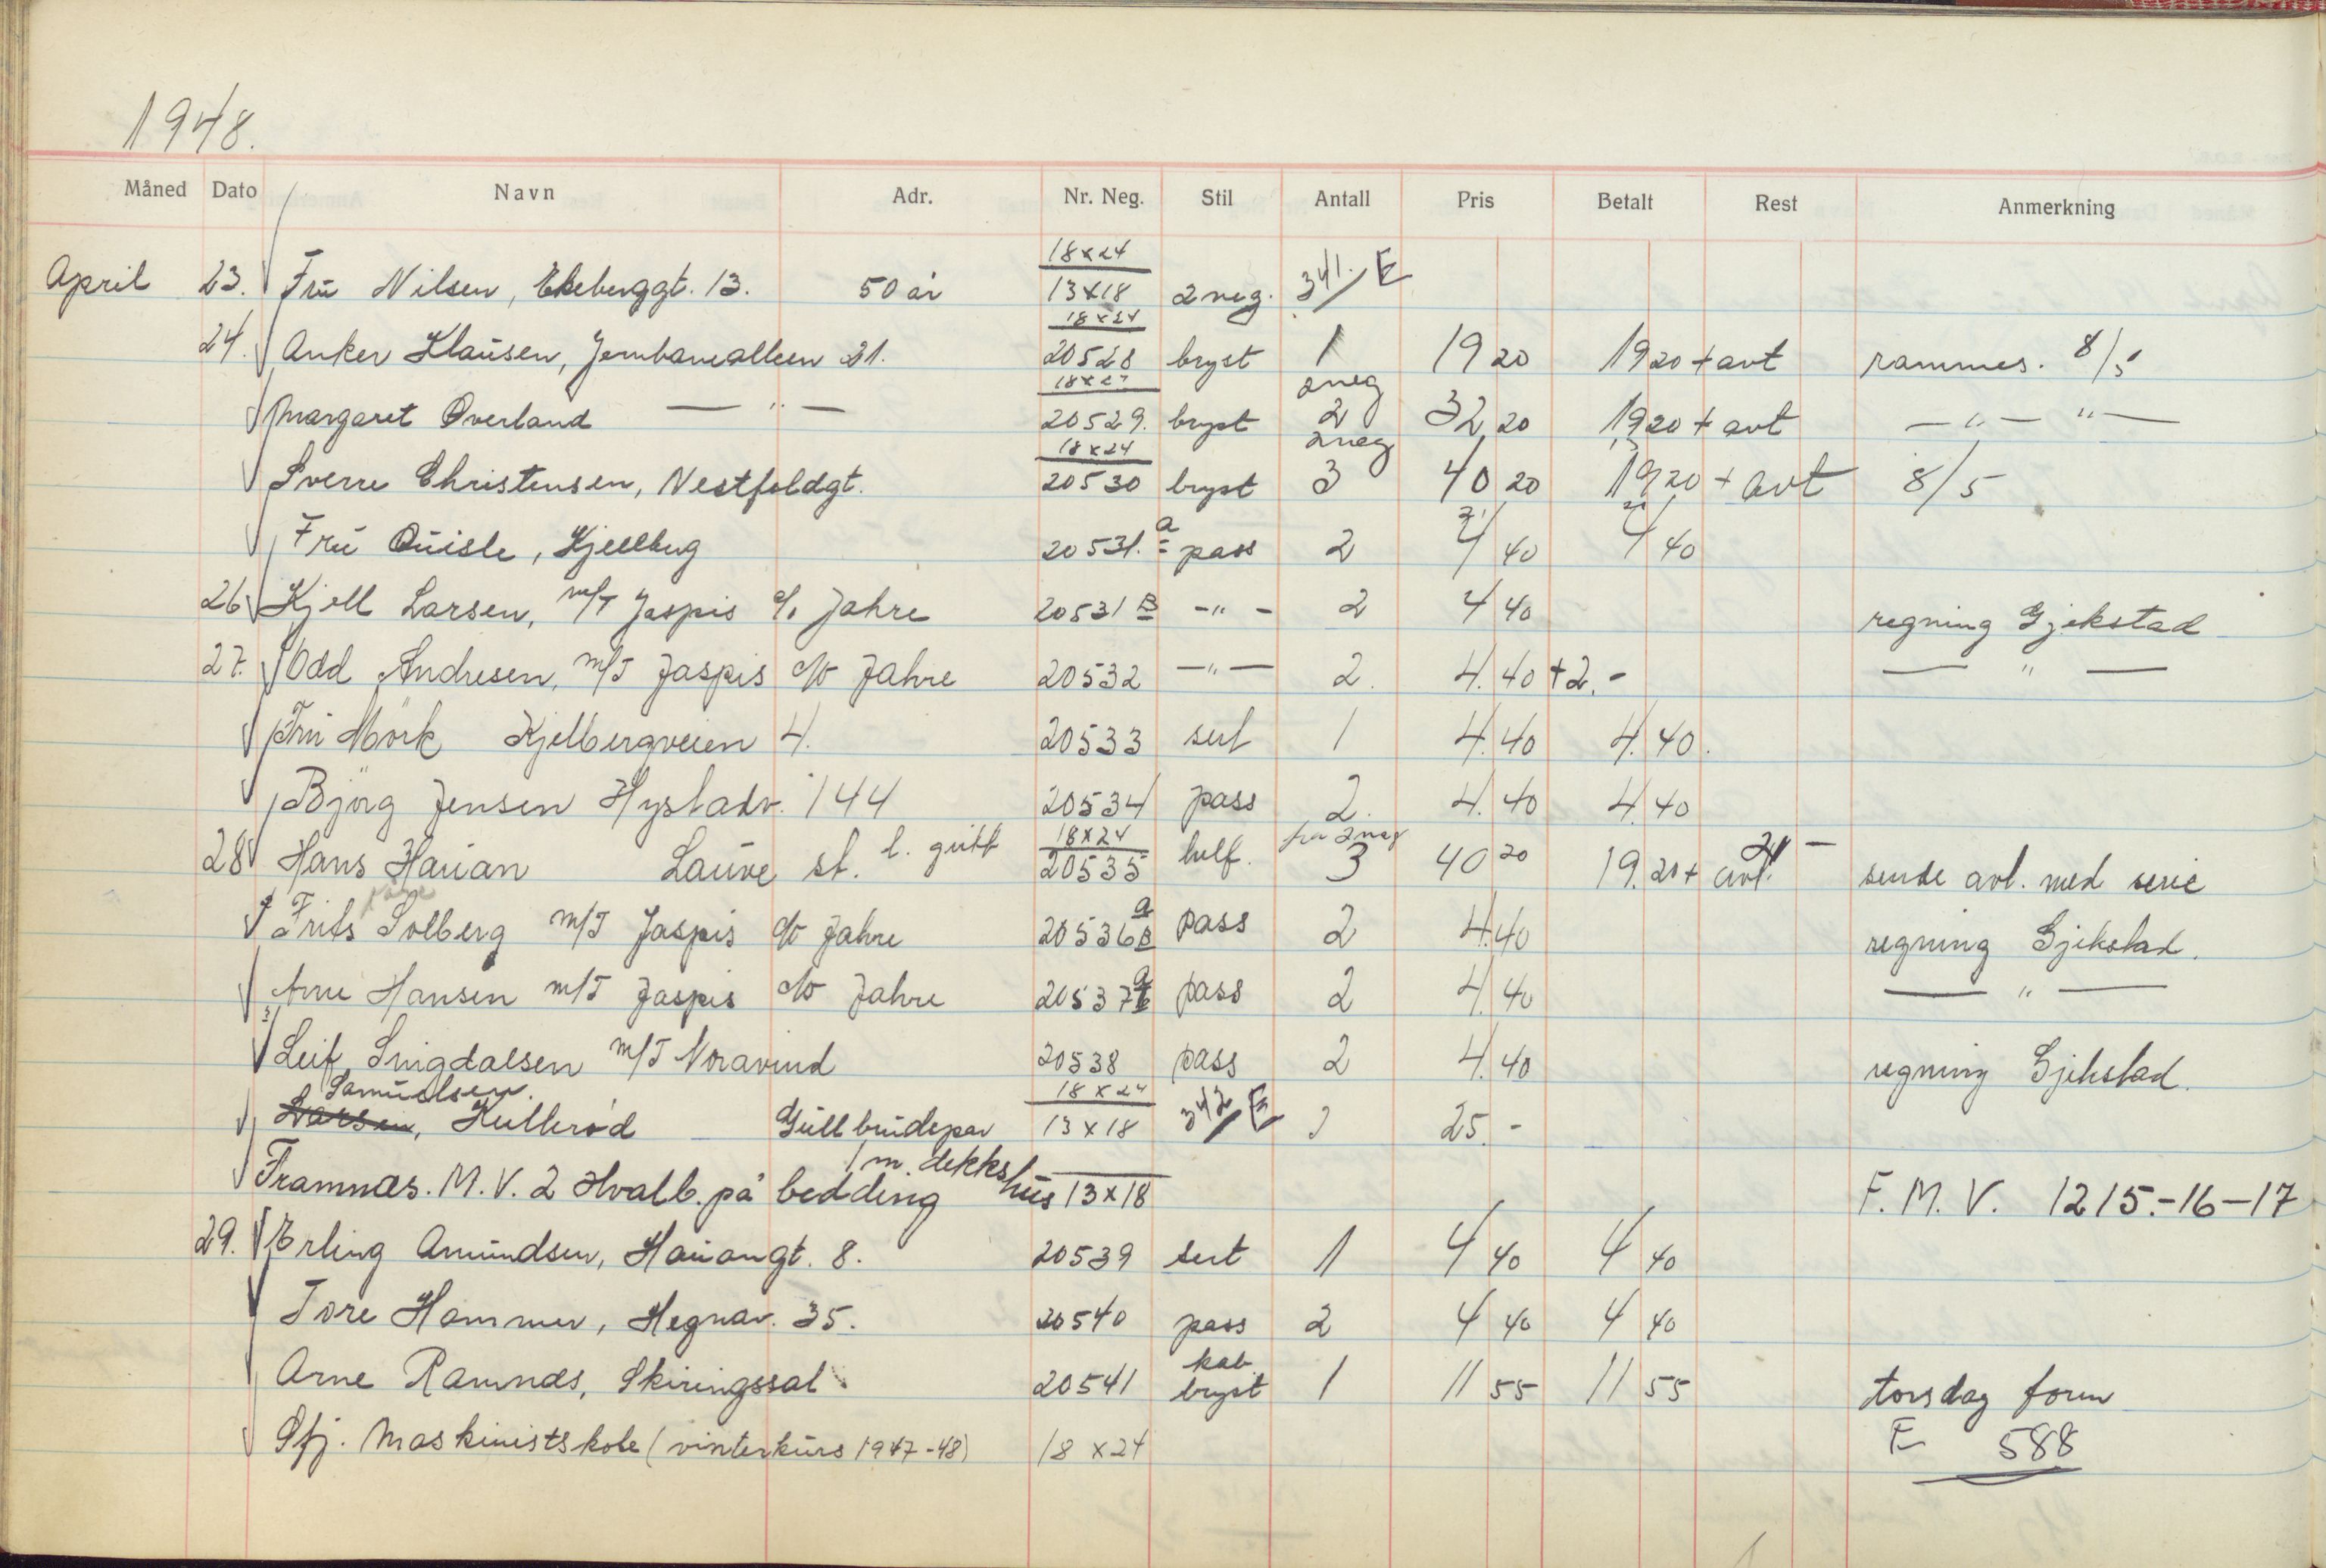 1948.
Måned Dato Navn Adr. Nr. Neg. Stil Antall Pris Betalt Rest Anmerkning
18x24
April 23. Frü Nilsen, Ekeberggt. 13. 50 år 13x18 2 neg. 341./E
18x24
24. Anker Klaüsen, Jernbanealleen 21. 20528 bryst 1 19 20 19 20 + avt rammes. 8/5
18x24 2neg
Margaret Överland — " — 20529. bryst 2 32 20 19 20 + avt — " — " —
18x24 2neg
Sverre Christensen, Vestfoldgt. 20530 bryst 3 40 20 19 20 + avt 8/5
Frü Qüisle, Kjellbug 20531. a pass 2 4 40 4 40
26 Kjell Larsen, m/T Jaspis c/o Jahre 20531 B - " - 2 4 40 regning Gjekstad
27. Odd Andresen, m/T Jaspis c/o Jahre 20532 — " — 2. 4. 40 + 2.- — " —
Frü Mörk Kjelbergveien 4. 20533 sert 1 4. 40 4. 40.
Björg Jensen Hystadv. 144 20534 pass 2. 4. 40 4. 40
18x24 fra 2 neg
28 Hans Haüan Laüve st. l. gütt 20535 helf. 3 40 20 19. 20 + avt. 21 — sende avt. med serie
Frits Solberg m/T Jaspis c/o Jahre 20536 a B pass 2 4. 40 regning Gjekstad.
Arne Hansen m/T Jaspis c/o Jahre 20537 a b pass 2 4. 40 — " —
Leif Snigdalsen m/T Noravind 20538 pass 2 4. 40 regning Gjekstad.
Samüelsen. 18x24
Larsen, Küllerød Güllbrüdepar 13x18 342/E 25.-
/m. dekkshüs
Framnæs. M.V. 2 Hvalb. på bedding 13x18 F.M.V. 1215.-16-17
29. Erling Amündsen, Haüangt. 8. 20539 sert 1 4 40 4 40
Tore Hammer, Hegnav. 35. 20540 pass 2 4 40 4 40
kab
Arne Ramnæs, Skiringssal 20541 bryst 1 11 55 11 55 torsdag form
Sfj. Maskinistskole (vinterkürs 1947-48) 18x24 E 588